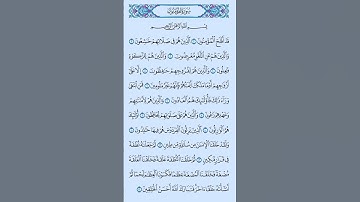 بِسْمِ اللَّهِ الرَّحْمَٰنِ الرَّحِيمِ
قَدْ أَفْلَحَ الْمُؤْمِنُونَ ١ الَّذِينَ هُمْ فِي صَلَاتِهِمْ خَاشِعُونَ ٢
وَالَّذِينَ هُمْ عَنِ اللَّغْوِ مُعْرِضُونَ ٣ وَالَّذِينَ هُمْ لِلزَّكَوٰةِ
فَاعِلُونَ ٤ وَالَّذِينَ هُمْ لِفُرُوجِهِمْ حَافِظُونَ ٥ إِلَّا عَلَىٰ
أَزْوَاجِهِمْ أَوْ مَا مَلَكَتْ أَيْمَانُهُمْ فَإِنَّهُمْ غَيْرُ مَلُومِينَ ٦ فَمَنِ ابْتَغَىٰ
وَرَاءَ ذَٰلِكَ فَأُولَٰئِكَ هُمُ الْعَادُونَ ٧ وَالَّذِينَ هُمْ لِأَمَانَاتِهِمْ
وَعَهْدِهِمْ رَاعُونَ ٨ وَالَّذِينَ هُمْ عَلَىٰ صَلَوَاتِهِمْ يُحَافِظُونَ ٩ أُولَٰئِكَ
هُمُ الْوَارِثُونَ ١٠ الَّذِينَ يَرِثُونَ الْفِرْدَوْسَ هُمْ فِيهَا خَالِدُونَ ١١
وَلَقَدْ خَلَقْنَا الْإِنْسَانَ مِنْ سُلَالَةٍ مِنْ طِينٍ ١٢ ثُمَّ جَعَلْنَاهُ نُطْفَةً
فِي قَرَارٍ مَكِينٍ ١٣ ثُمَّ خَلَقْنَا النُّطْفَةَ عَلَقَةً فَخَلَقْنَا الْعَلَقَةَ
مُضْغَةً فَخَلَقْنَا الْمُضْغَةَ عِظَامًا فَكَسَوْنَا الْعِظَامَ لَحْمًا ثُمَّ
أَنْشَأْنَاهُ خَلْقًا آخَرَ فَتَبَارَكَ اللَّهُ أَحْسَنُ الْخَالِقِينَ ١٤